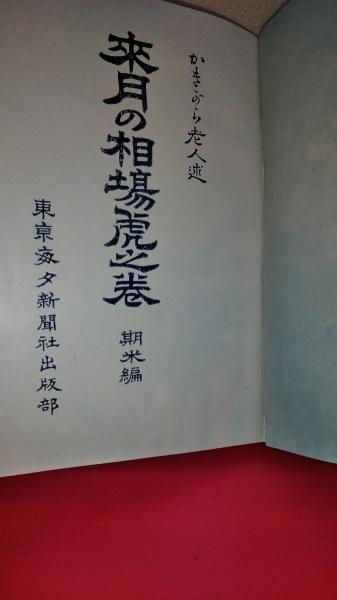 かきがら老人述
來月の相場虎之巻
期米編
東京毎夕新聞社出版部